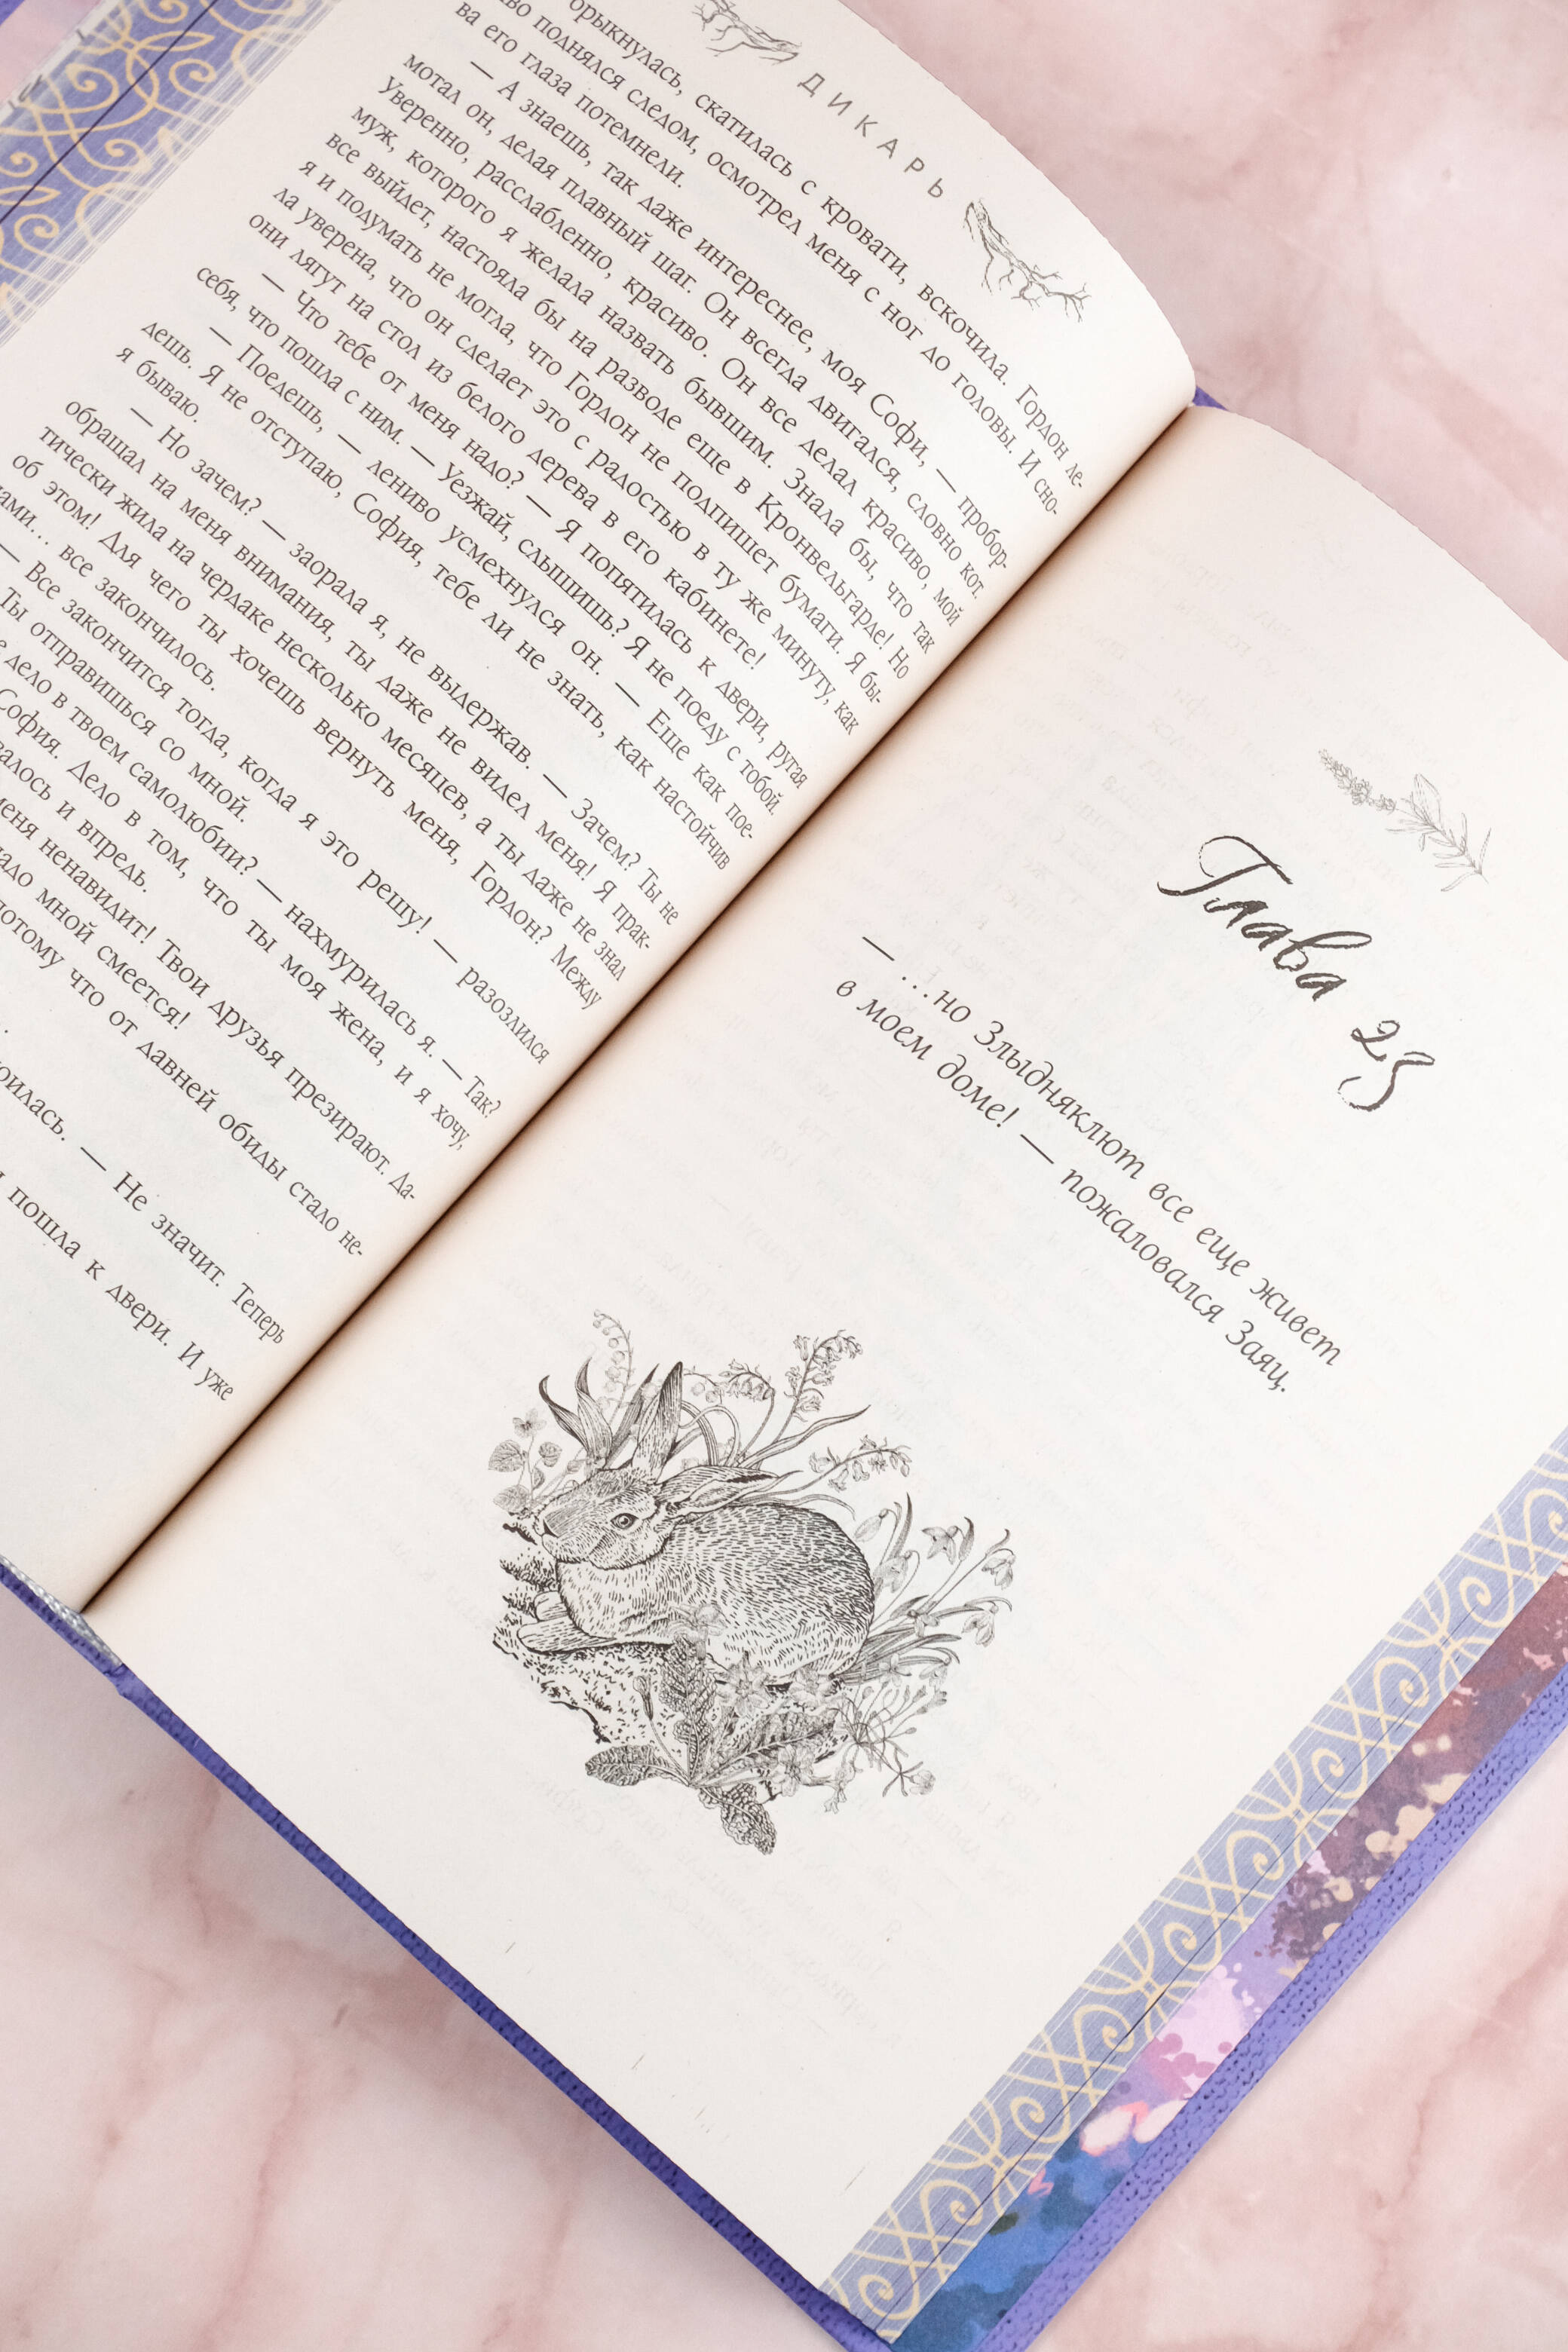 ДИКАРЬ
орыкнулась, скатилась с кровати, вскочила. Гордон ле-
во поднялся следом, осмотрел меня с ног до головы. И сно-
ва его глаза потемнели.
— А знаешь, так даже интереснее, моя Софи, — пробор-
мотал он, делая плавный шаг. Он всегда двигался, словно кот.
Уверенно, расслабленно, красиво. Он все делал красиво, мой
муж, которого я желала назвать бывшим. Знала бы, что так
все выйдет, настояла бы на разводе еще в Кронвельгарде! Но
я и подумать не могла, что Гордон не подпишет бумаги. Я бы-
ла уверена, что он сделает это с радостью в ту же минуту, как
они лягут на стол из белого дерева в его кабинете!
— Что тебе от меня надо? — Я попятилась к двери, ругая
себя, что пошла с ним. — Уезжай, слышишь? Я не поеду с тобой.
— Поедешь, — лениво усмехнулся он. — Еще как пое-
дешь. Я не отступаю, София, тебе ли не знать, как настойчив
я бываю.
— Но зачем? — заорала я, не выдержав. — Зачем? Ты не
обращал на меня внимания, ты даже не видел меня! Я прак-
тически жила на чердаке несколько месяцев, а ты даже не знал
об этом! Для чего ты хочешь вернуть меня, Гордон? Между
нами... все закончилось.
— Все закончится тогда, когда я это решу! — разозлился
Ты отправишься со мной.
дело в твоем самолюбии? — нахмурилась я. — Так?
София. Дело в том, что ты моя жена, и я хочу,
алось и впредь.
меня ненавидит! Твои друзья презирают. Да-
надо мной смеется!
потому что от давней обиды стало не-
оилась. — Не значит. Теперь
пошла к двери. И уже
Глава 23
— ...но Злыдняклют все еще живет
в моем доме! — пожаловался Заяц.